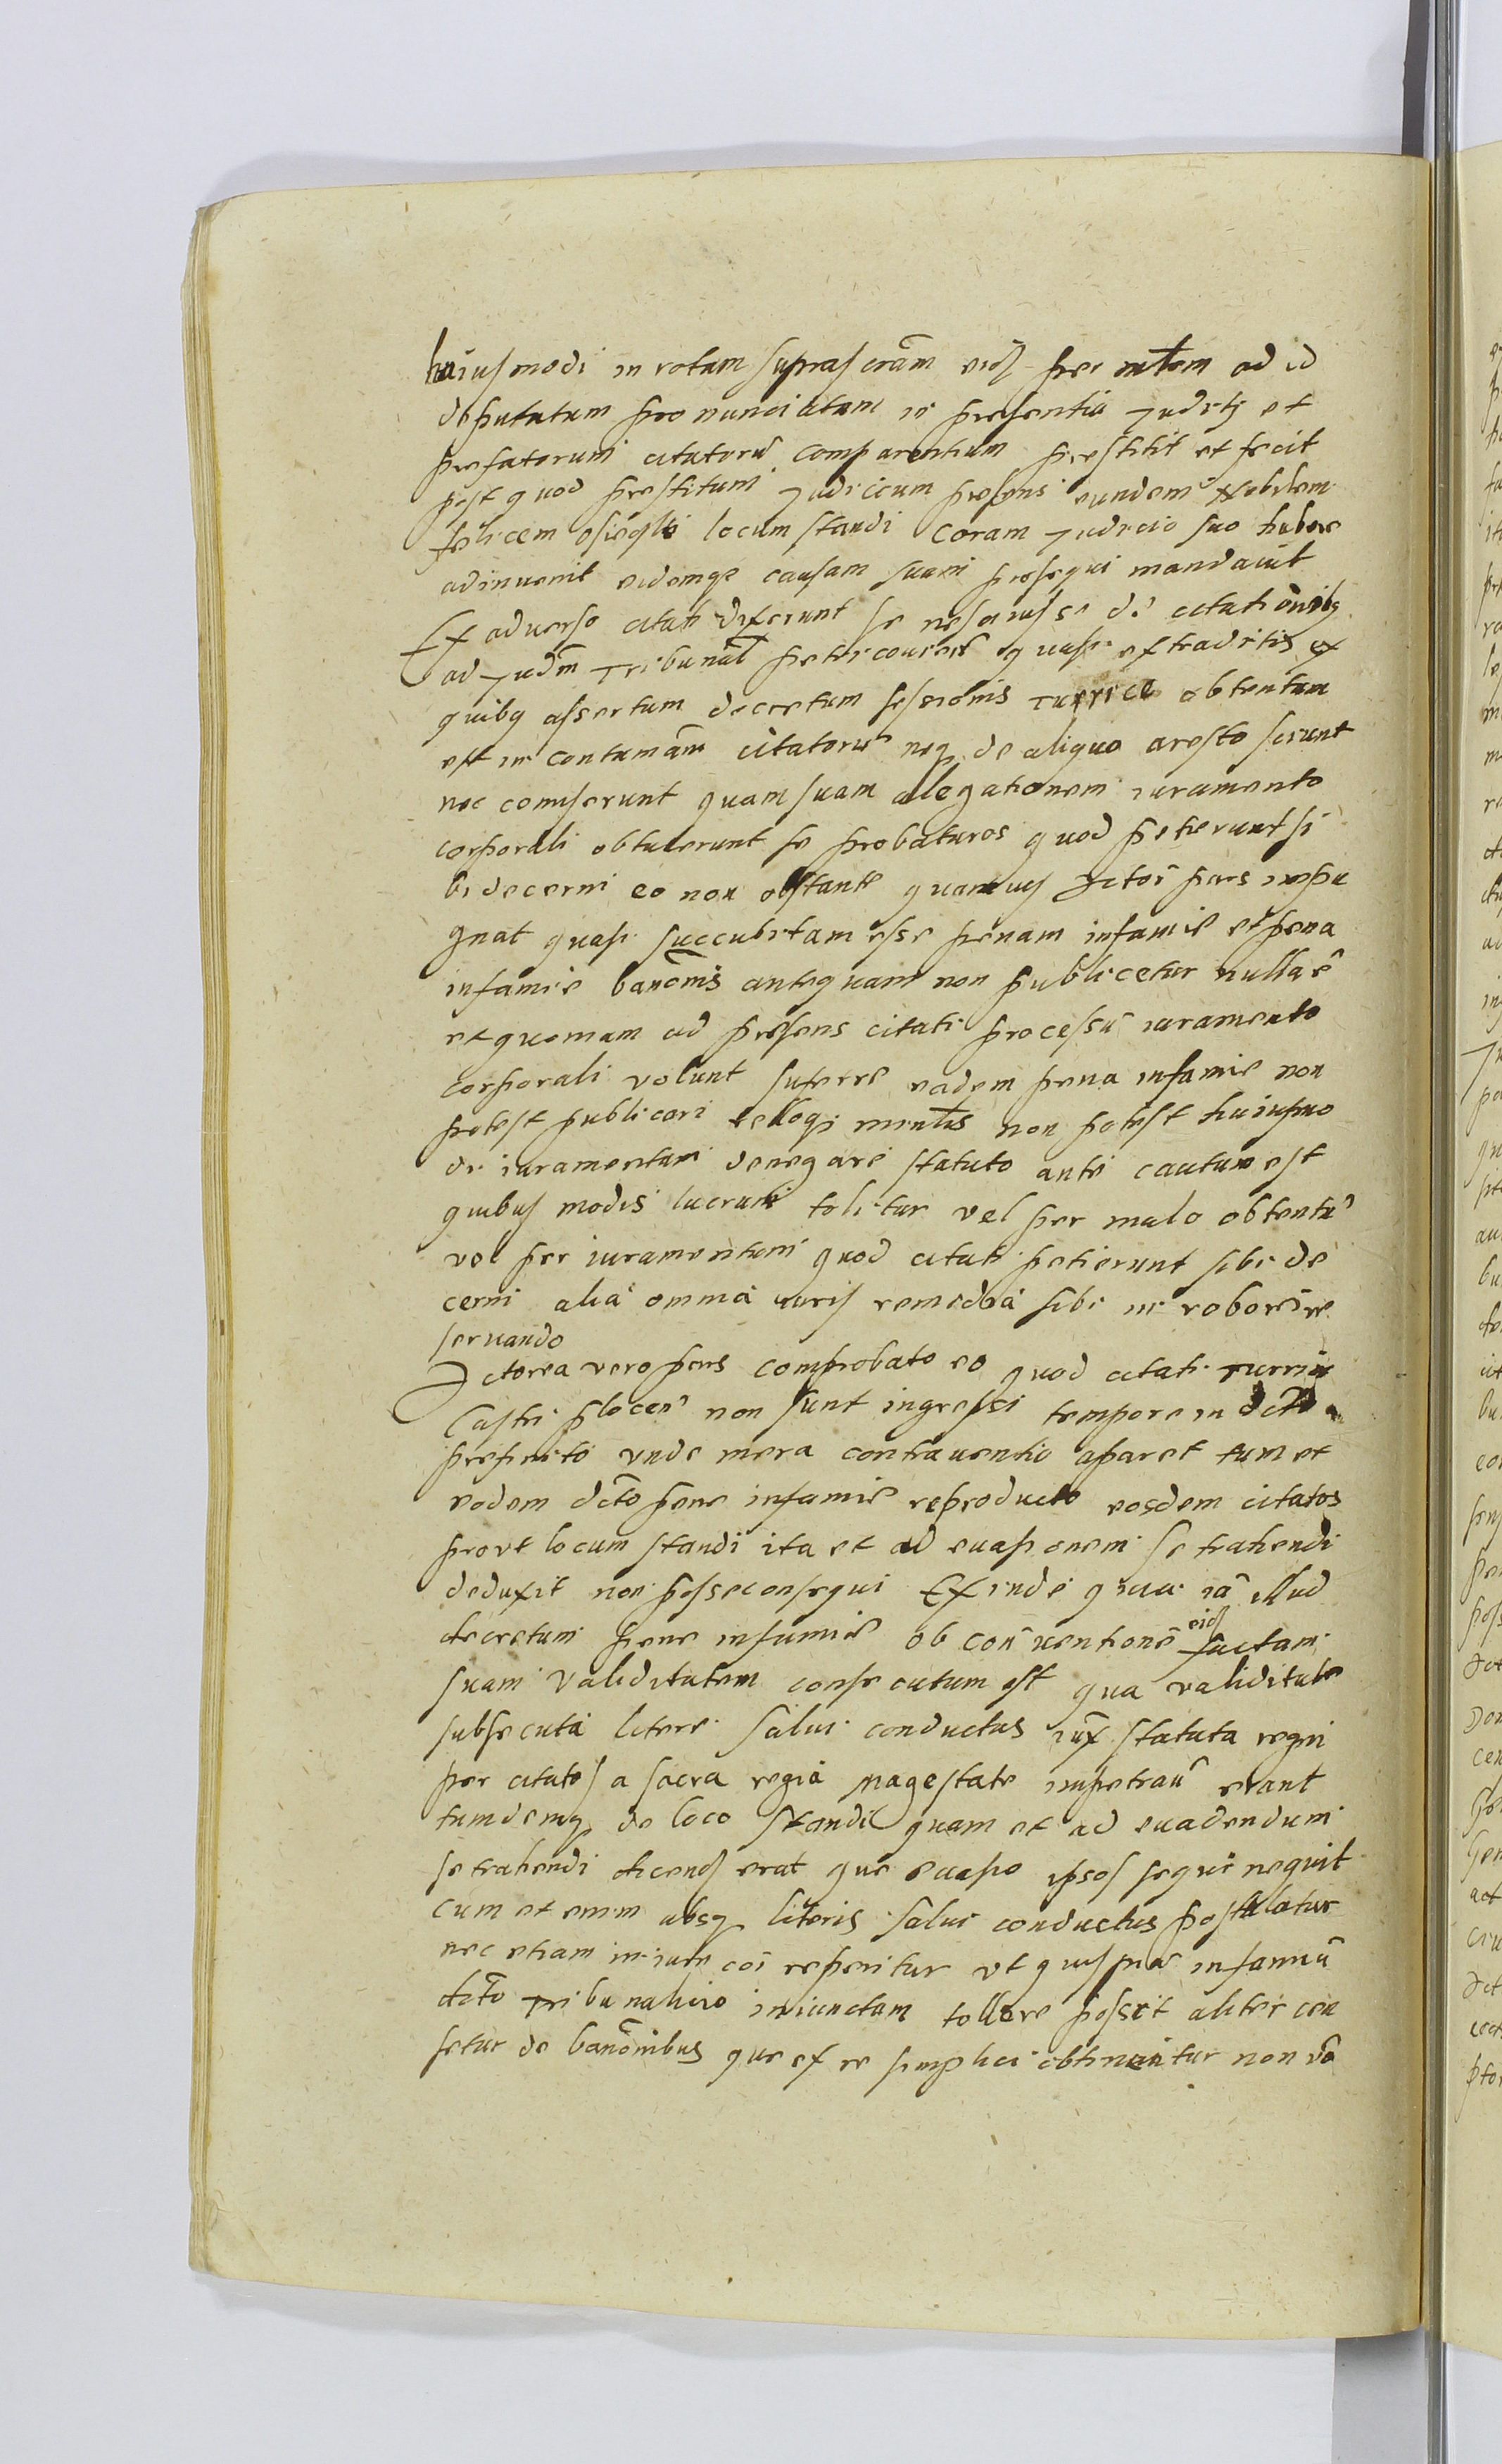 huiusmodi in rotam suprascram eid per mtem ad id
deputatum pronunciatam in presentia Judity et
prefatorum citatoru comparentium prestitit et fecit
post quod prestitum Judicium presens eundem Nobilem
felicem locum standi coram Judicio suo habere
adinuenit eidemqe causam suam prosequi mandauit
Ex aduerso citati dixerunt se nesciuisse de citationibq
ad Judm Tribunal Petricouien quasi ex traditis ex
quibq assertum decretum sessionis Turrice obtentum
est in contumam citatoru neq de aliquo aresto sciunt
nec comiserunt quam suam alegationem iuramento
corporali obtulerunt se probaturos quod petierunt si
bi decerni eo non obstante quamuis Actor pars impu
gnat quasi succubitam esse penam infamie et pena
infamie banonis antequam non publicetur nulla e
et quoniam ad presens citati processu iuramento
corporali volunt suferre eadem pena infamie non
potest publicari non potest huiusmo
di iuramentum denegari statuto ante cautum est
quibus modis lucrum tolitur vel per male obtentu
vel per iuramentum quod citati petierunt sibi de
cerni alia omnia iuris remedia sibi in robore
seruando
Actorea vero pars comprobato eo quod citati Turrim
Castri plocen non sunt ingressi tempore in dcto
prefinito unde mera contrauentio aparet tum et
eodem dcto pene infamie reproducto eosdem citatos
prout locum standi ita et ad euasionem se trahendi
deduxit non posse consequi Exinde quia ia illud
decretum pene infamie ob conuentione eid factam
suam validitatem consecutum est qua validitate
subsecuta litere salui conductus iux statuta regni
per citatos a sacra regia magestate impetran erant
tumdemq de loco standi quam et ad euadendum
se trahendi dicend erat que euasio ipsos sequi nequit
cum et enim absq literis salui conductus postulatur
nec etiam in iure coi reperitur ut quis pna infamiu
dcto Tribunalicio iniunctam tollere possit aliter cen
setur de banonibus que ex re simplici obtinuitur non vo